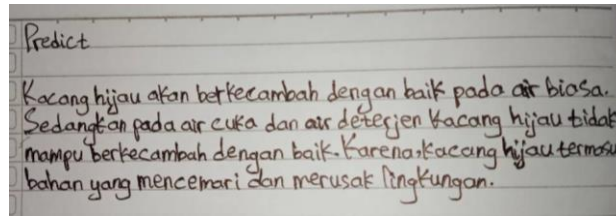 Predict
Kacang hijau akan berkecambah dengan baik pada air biasa.
Sedangkan pada air cuka dan air deterjen kacang hijau tidak
mampu berkecambah dengan baik. Karena, kacang hijau termasu
bahan yang mencemari dan merusak lingkungan.